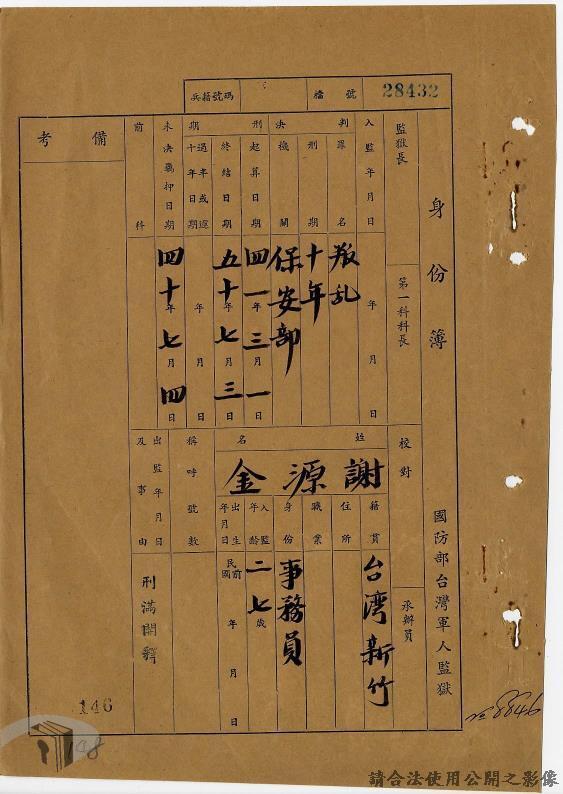 檔號 28432
兵籍號碼
身份簿
國防部台灣軍人監獄
監獄長
第一科科長
校對
承辦員
入監年月日 年 月 日
判決
罪名 叛乱
刑期 十年
機關 保安部
刑期
起算日期 四一年三月一日
終結日期 五十年七月三日
年 月 日
未決羈押日期 四十年七月四日
前科
備考
姓名 謝源金
籍貫 台灣新竹
住所
職業
身份 事務員
入監年齡 二七歲
出生年月日 民國前 年 月 日
稱呼號數
出監年月日及事由 刑滿開釋
146
98
請合法使用公開之影像